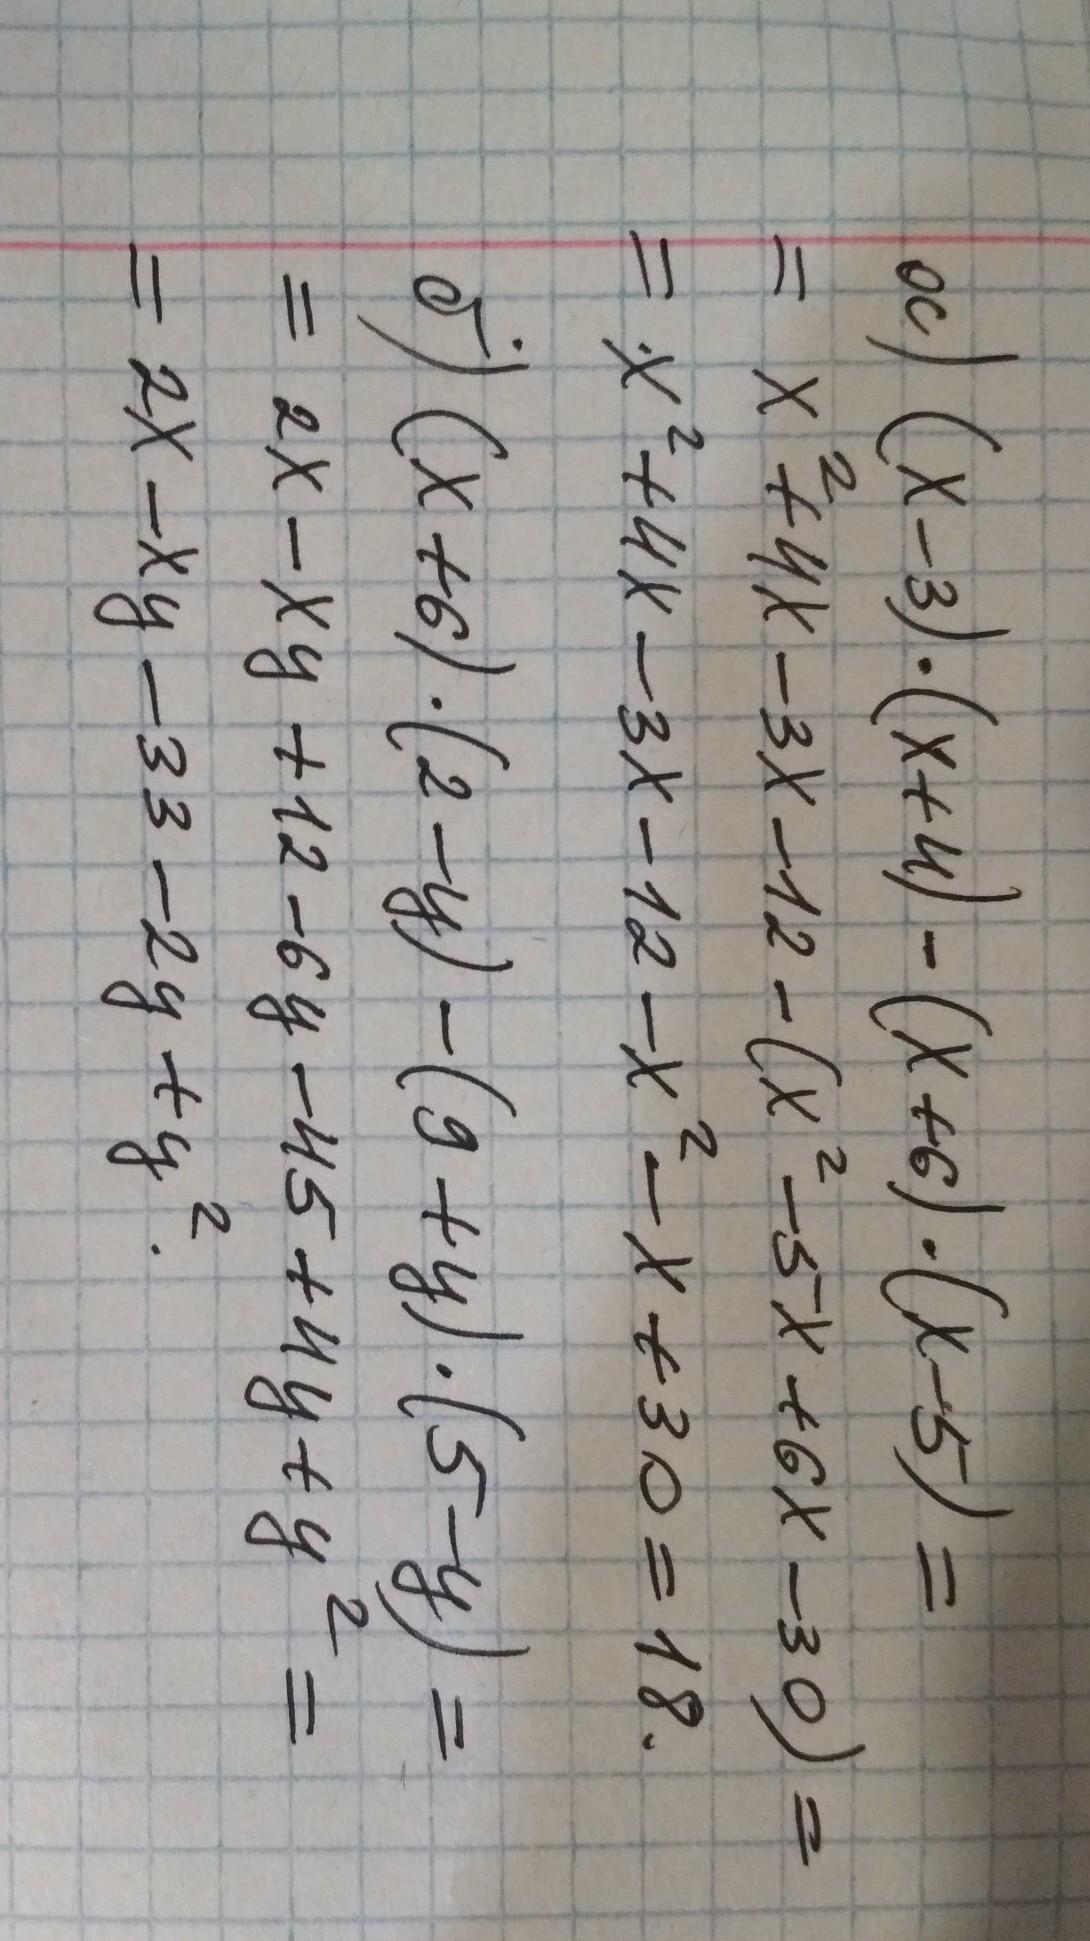 а) (x-3)·(x+4)-(x+6)·(x-5)=
= x²+4x-3x-12-(x²-5x+6x-30)=
= x²+4x-3x-12-x²-x+30=18.
б) (x+6)·(2-y)-(9+y)·(5-y)=
= 2x-xy+12-6y-45+4y+y²=
= 2x-xy-33-2y+y².